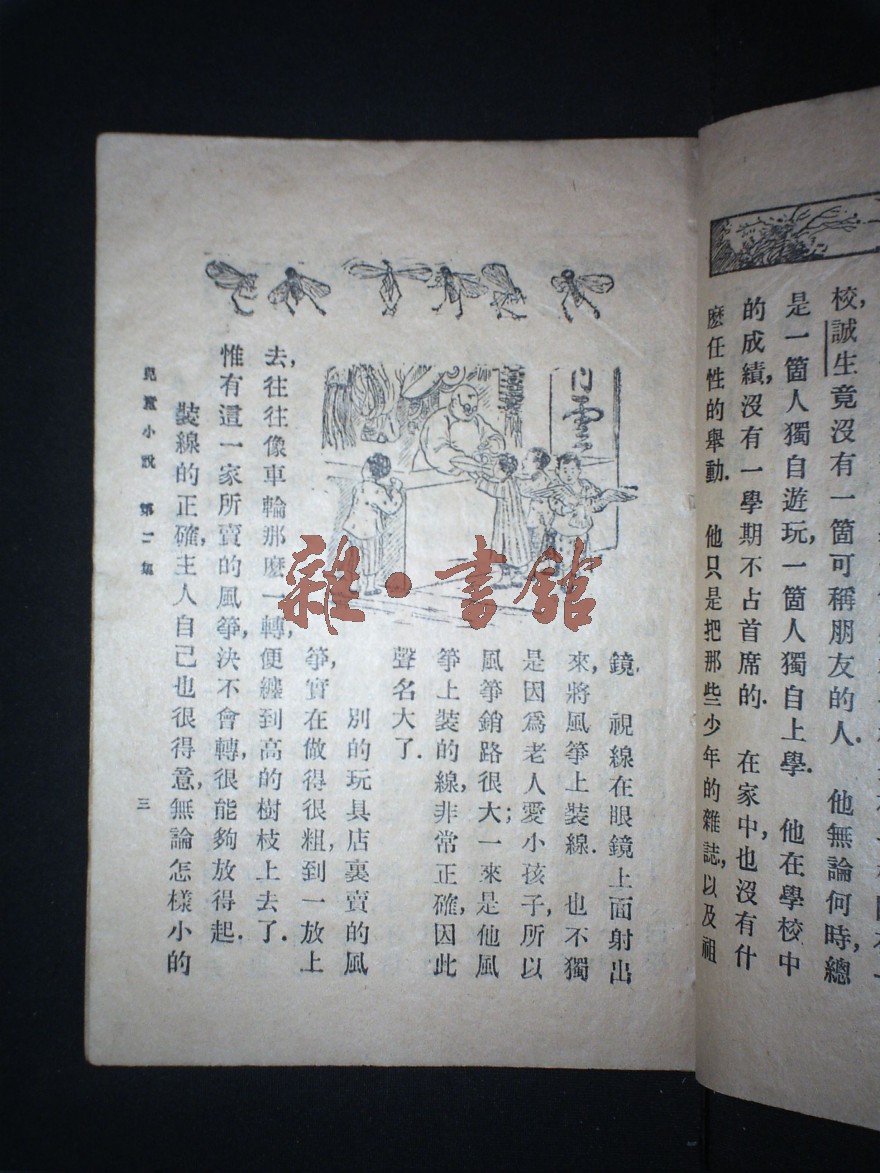 校,誠生竟沒有一箇可稱朋友的人. 他無論何時,總
是一箇人獨自遊玩,一箇人獨自上學. 他在學校中
的成績,沒有一學期不占首席的. 在家中,也沒有什
麽任性的舉動. 他只是把那些少年的雜誌,以及祖
鏡. 視線在眼鏡上面射出
來,將風箏上裝線. 也不獨
是因爲老人愛小孩子,所以
風箏銷路很大;一來是他風
箏上裝的線,非常正確,因此
聲名大了.
別的玩具店裏賣的風
箏,實在做得很粗,到一放上
去,往往像車輪那麽轉,便纏到高的樹枝上去了.
惟有這一家所賣的風箏,決不會轉,很能夠放得起.
裝線的正確,主人自己也很得意,無論怎樣小的
兒童小說 第二集
三
雲
雜·書館